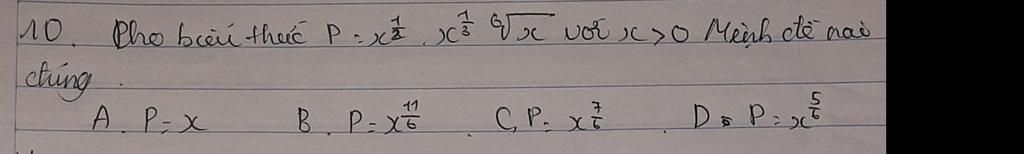 10. Cho biểu thức P = x^{\frac{1}{2}} . x^{\frac{1}{3}} \sqrt[6]{x} với x > 0 Mệnh đề nào
đúng .
A. P = x B. P = x^{\frac{11}{6}} . C, P = x^{\frac{7}{6}} . D. P = x^{\frac{5}{6}}